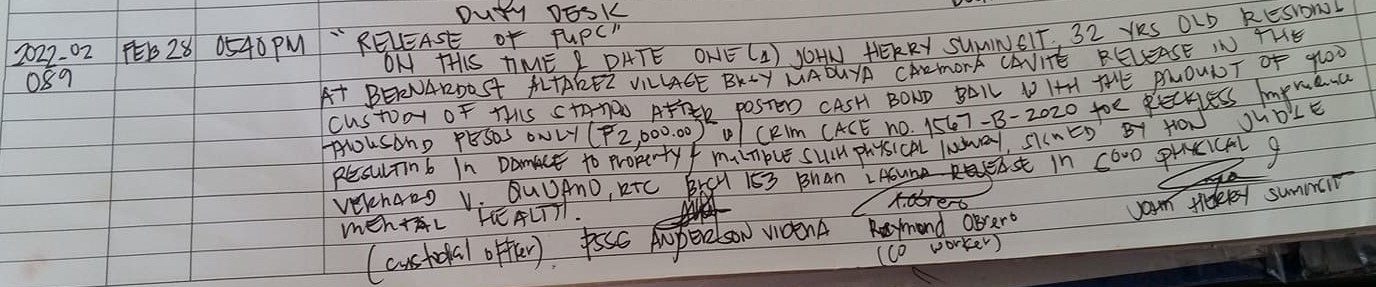 DUTY DESK
2022-02 FEB 28 0540PM "RELEASE OF PUPC"
089 ON THIS TIME & DATE ONE (1) JOHN HERRY SUMINGIT. 32 YRS OLD RESIDENT
AT BERNARDO ST ALTAREZ VILLAGE BRGY MADUYA CARMONA CAVITE RELEASE IN THE
CUSTODY OF THIS STATION AFTER POSTED CASH BOND BAIL WITH THE AMOUNT OF TWO
THOUSAND PESOS ONLY (₱2,000.00) CRIM CASE NO. 1567-B-2020 FOR RECKLESS Imprudence
RESULTING IN DAMAGE TO PROPERTY & MULTIPLE PHYSICAL INJURY, SIGNED BY HON
V. RTC BRCH 153 LAGUNA RELEASE IN GOOD PHYSICAL &
MENTAL HEALTH.
(custodial officer) PSSG ANDERSON VIDEÑA Raymond OBrero JOHN HERRY SUMINGIT
(CO worker)